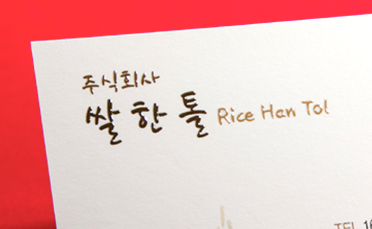 주식회사
쌀 한 톨 Rice Han Tol
TEL